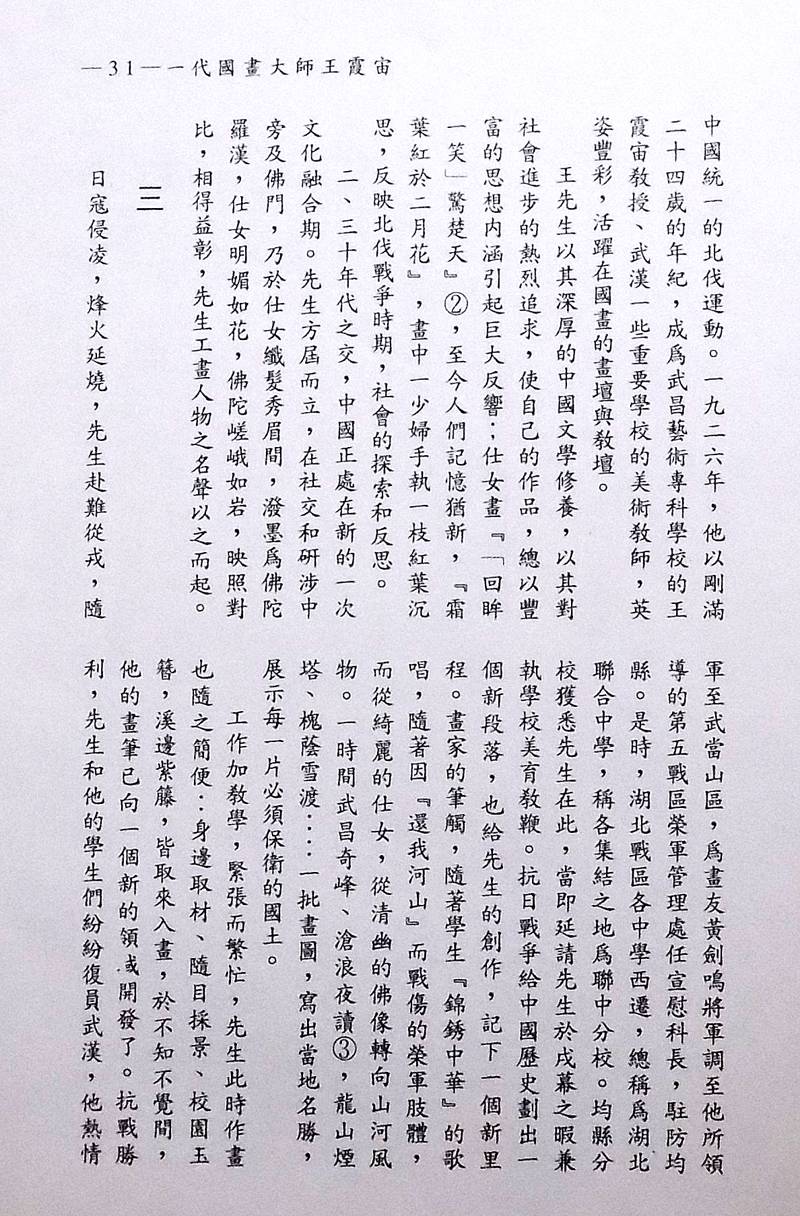 —31—一代國畫大師王霞宙
中國統一的北伐運動。一九二六年，他以剛滿
二十四歲的年紀，成爲武昌藝術專科學校的王
霞宙教授、武漢一些重要學校的美術教師，英
姿豐彩，活躍在國畫的畫壇與教壇。
王先生以其深厚的中國文學修養，以其對
社會進步的熱烈追求，使自己的作品，總以豐
富的思想内涵引起巨大反響；仕女畫『「回眸
一笑」驚楚天』②，至今人們記憶猶新，『霜
葉紅於二月花』，畫中一少婦手執一枝紅葉沉
思，反映北伐戰爭時期，社會的探索和反思。
二、三十年代之交，中國正處在新的一次
文化融合期。先生方屆而立，在社交和研涉中
旁及佛門，乃於仕女纖髮秀眉間，潑墨爲佛陀
羅漢，仕女明媚如花，佛陀嵯峨如岩，映照對
比，相得益彰，先生工畫人物之名聲以之而起。
三
日寇侵凌，烽火延燒，先生赴難從戎，隨
軍至武當山區，爲畫友黃劍鳴將軍調至他所領
導的第五戰區榮軍管理處任宣慰科長，駐防均
縣。是時，湖北戰區各中學西遷，總稱爲湖北
聯合中學，稱各集結之地爲聯中分校。均縣分
校獲悉先生在此，當即延請先生於戍幕之暇兼
執學校美育教鞭。抗日戰爭給中國歷史劃出一
個新段落，也給先生的創作，記下一個新里
程。畫家的筆觸，隨著學生『錦銹中華』的歌
唱，隨著因『還我河山』而戰傷的榮軍肢體，
而從綺麗的仕女，從清幽的佛像轉向山河風
物。一時間武昌奇峰、滄浪夜讀③，龍山煙
塔、槐蔭雪渡‥‥一批畫圖，寫出當地名勝，
展示每一片必須保衛的國土。
工作加教學，緊張而繁忙，先生此時作畫
也隨之簡便：身邊取材、隨目採景、校園玉
簪，溪邊紫藤，皆取來入畫，於不知不覺間，
他的畫筆已向一個新的領域開發了。抗戰勝
利，先生和他的學生們紛紛復員武漢，他熱情